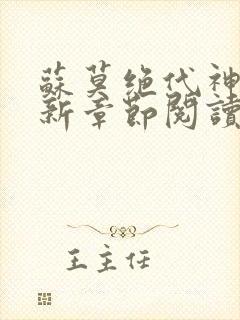 蘇莫绝代神
新章節閱讀
王主任